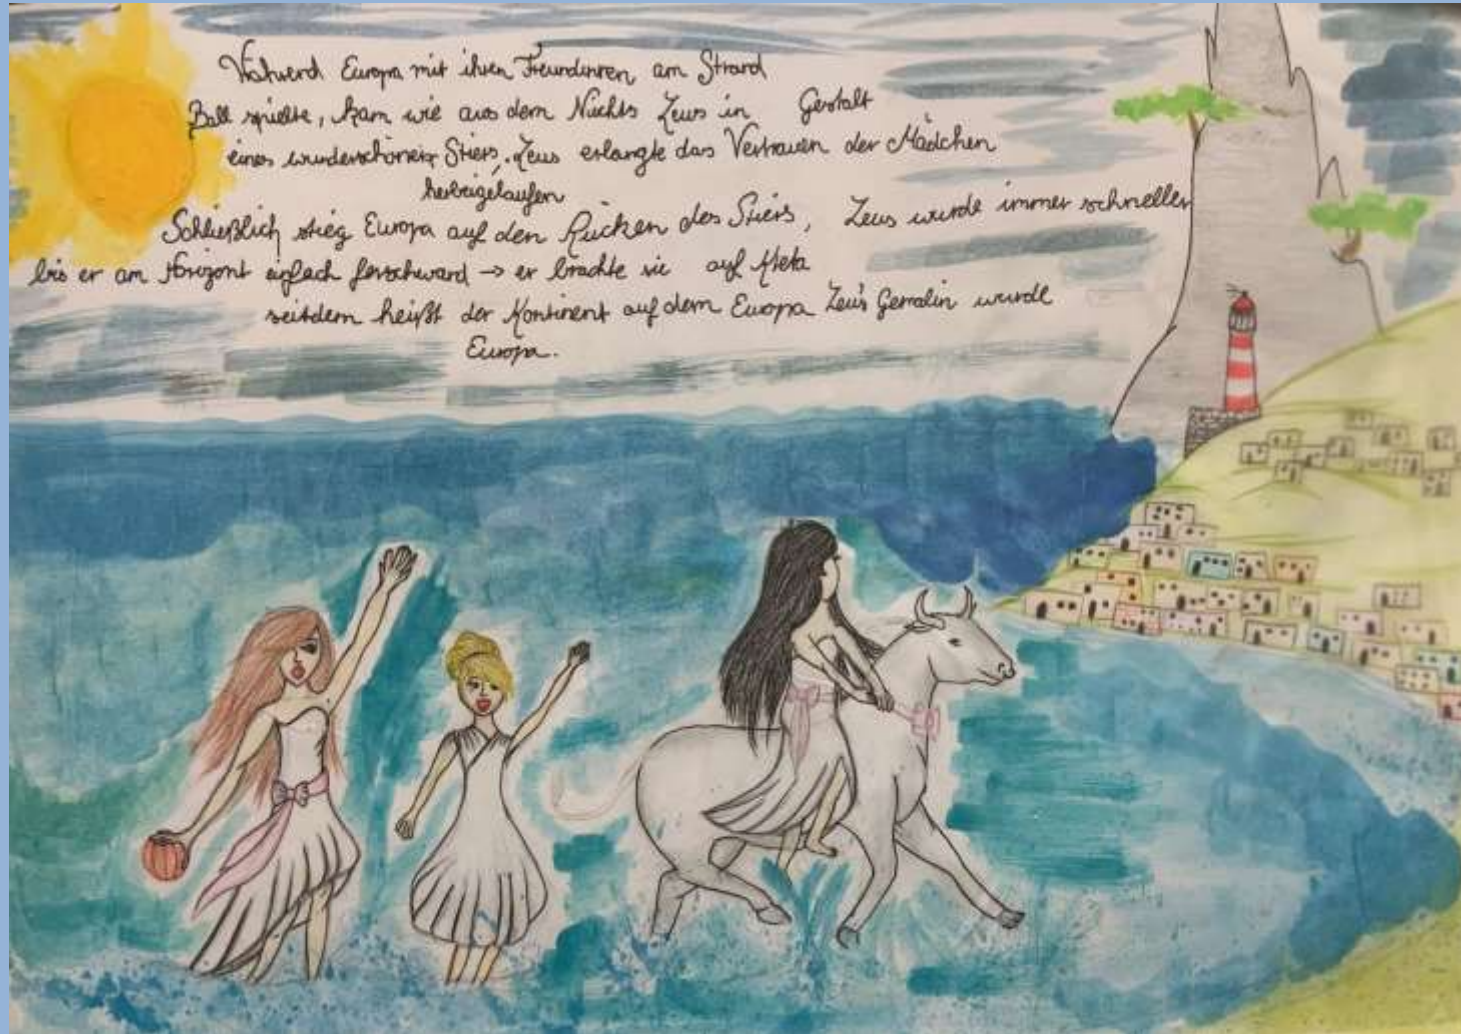 Während Europa mit ihren Freundinnen am Strand
Ball spielte, kam wie aus dem Nichts Zeus in Gestalt
eines wunderschönen Stiers. Zeus erlangte das Vertrauen der Mädchen
herbeigelaufen
Schließlich stieg Europa auf den Rücken des Stiers, Zeus wurde immer schneller
bis er am Horizont einfach forschwand → er brachte sie auf Kreta
seitdem heißt der Kontinent auf dem Europa Zeus Gemalin wurde
Europa.